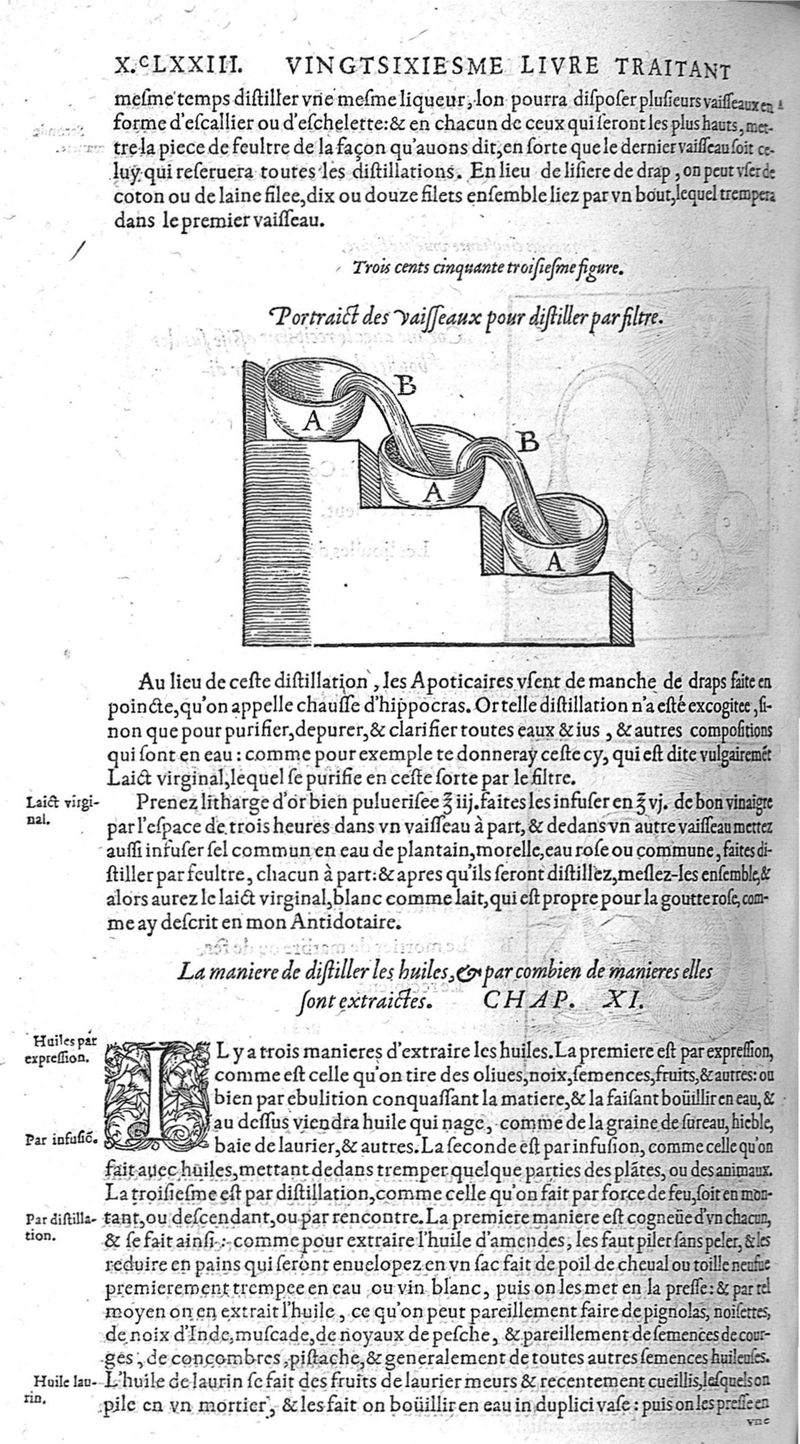 X.cLXXIII. VINGTSIXIESME LIVRE TRAITANT
meſme temps diſtiller vne meſme liqueur, lon pourra diſpoſer pluſieurs vaiſſeaux en
forme d'eſcallier ou d'eſchelette: & en chacun de ceux qui ſeront les plus hauts, met-
tre la piece de feultre de la façon qu'auons dit, en ſorte que le dernier vaiſſeau ſoit ce-
luy qui reſeruera toutes les diſtillations. En lieu de liſiere de drap, on peut vſer de
coton ou de laine filee, dix ou douze filets enſemble liez par vn bout, lequel trempera
dans le premier vaiſſeau.
Trois cents cinquante troiſieſme figure.
Portraict des vaiſſeaux pour diſtiller par filtre.
B
A
B
A
A
Au lieu de ceſte diſtillation, les Apoticaires vſent de manche de draps faite en
poincte, qu'on appelle chauſſe d'hippocras. Or telle diſtillation n'a eſté excogitee, ſi-
non que pour purifier, depurer, & clarifier toutes eaux & ius, & autres compoſitions
qui ſont en eau: comme pour exemple te donneray ceſte cy, qui eſt dite vulgairemēt
Laict virginal, lequel ſe purifie en ceſte ſorte par le filtre.
Laict virgi-
nal.
Prenez litharge d'or bien pulueriſee ℥ iij. faites les infuſer en ℥ vj. de bon vinaigre
par l'eſpace de trois heures dans vn vaiſſeau à part, & dedans vn autre vaiſſeau mettez
auſſi infuſer ſel commun en eau de plantain, morelle, eau roſe ou commune, faites di-
ſtiller par feultre, chacun à part: & apres qu'ils ſeront diſtillez, meſlez-les enſemble, &
alors aurez le laict virginal, blanc comme lait, qui eſt propre pour la goutte roſe, com-
me ay deſcrit en mon Antidotaire.
La maniere de diſtiller les huiles, & par combien de manieres elles
ſont extraictes. CHAP. XI.
Huiles par
expreſſion.
IL y a trois manieres d'extraire les huiles. La premiere eſt par expreſſion,
comme eſt celle qu'on tire des oliues, noix, ſemences, fruits, & autres: ou
bien par ebulition conquaſſant la matiere, & la faiſant boüillir en eau, &
au deſſus viendra huile qui nage, comme de la graine de ſureau, hieble,
Par infuſiō.
baie de laurier, & autres. La ſeconde eſt par infuſion, comme celle qu'on
fait auec huiles, mettant dedans tremper quelque parties des plātes, ou des animaux.
La troiſieſme eſt par diſtillation, comme celle qu'on fait par force de feu, ſoit en mon-
Par diſtilla-
tion.
tant, ou deſcendant, ou par rencontre. La premiere maniere eſt cogneüe d'vn chacun,
& ſe fait ainſi: comme pour extraire l'huile d'amendes, les faut piler ſans peler, & les
reduire en pains qui ſeront enuelopez en vn ſac fait de poil de cheual ou toille neufue
premierement trempee en eau ou vin blanc, puis on les met en la preſſe: & par tel
moyen on en extrait l'huile, ce qu'on peut pareillement faire de pignolas, noiſettes,
de noix d'Inde, muſcade, de noyaux de peſche, & pareillement de ſemences de cour-
ges, de concombres, piſtache, & generalement de toutes autres ſemences huileuſes.
Huile lau-
rin.
L'huile de laurin ſe fait des fruits de laurier meurs & recentement cueillis, leſquels on
pile en vn mortier, & les fait on boüillir en eau in duplici vaſe: puis on les preſſe en
vne